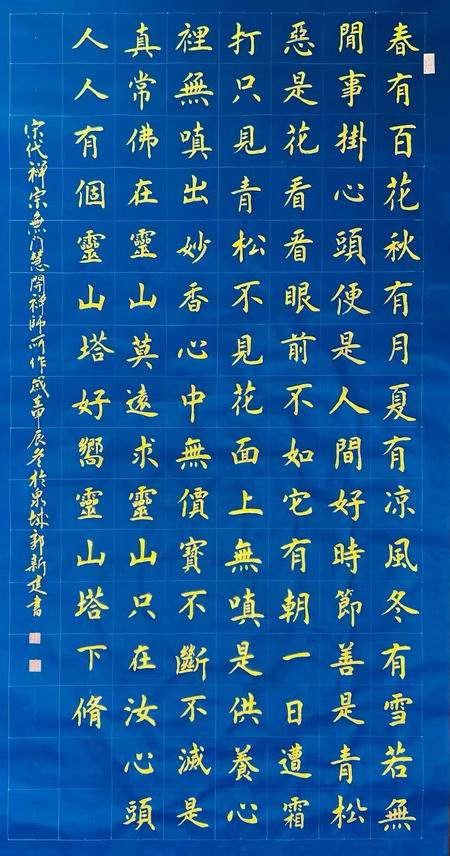 春有百花秋有月夏有凉風冬有雪若無
閒事掛心頭便是人間好時節善是青松
惡是花看看眼前不如它有朝一日遭霜
打只見青松不見花面上無嗔是供養心
裡無嗔出妙香心中無價寶不斷不滅是
真常佛在靈山莫遠求靈山只在汝心頭
人人有個靈山塔好嚮靈山塔下脩
宋代禪宗無門慧開禪師所作歲甲辰冬於泉城郭新建書